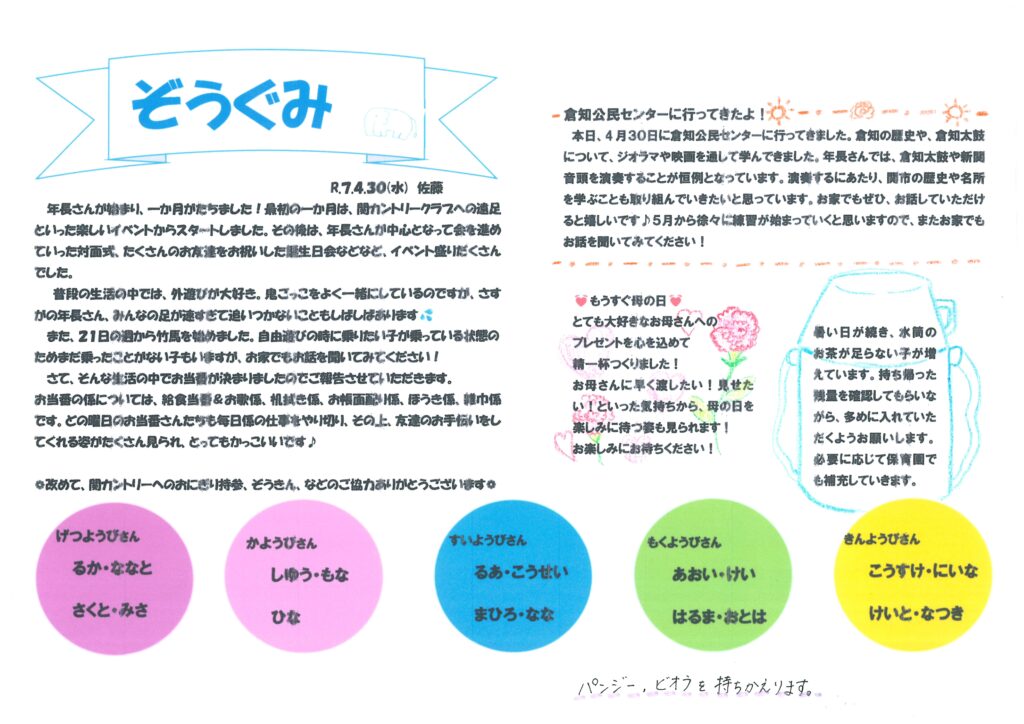 ぞうぐみ
R.7.4.30(水) 佐藤
年長さんが始まり、一か月がたちました！最初の一か月は、関カントリークラブへの遠足
といった楽しいイベントからスタートしました。その後は、年長さんが中心となって会を進め
ていった対面式、たくさんのお友達をお祝いした誕生日会などなど、イベント盛りだくさん
でした。
普段の生活の中では、外遊びが大好き。鬼ごっこをよく一緒にしているのですが、さす
がの年長さん、みんなの足が速すぎて追いつかないこともしばしばあります💦
また、21日の週から竹馬を始めました。自由遊びの時に乗りたい子が乗っている状態の
ためまだ乗ったことがない子もいますが、お家でもお話を聞いてみてください！
さて、そんな生活の中でお当番が決まりましたのでご報告させていただきます。
お当番の係については、給食当番＆お歌係、机拭き係、お帳面配り係、ほうき係、雑巾係
です。どの曜日のお当番さんたちも毎日係の仕事をやり切り、その上、友達のお手伝いをし
てくれる姿がたくさん見られ、とってもかっこいいです♪
❁改めて、関カントリーへのおにぎり持参、ぞうきん、などのご協力ありがとうございます❁
倉知公民センターに行ってきたよ！
本日、４月３０日に倉知公民センターに行ってきました。倉知の歴史や、倉知太鼓
について、ジオラマや映画を通して学んできました。年長さんでは、倉知太鼓や新関
音頭を演奏することが恒例となっています。演奏するにあたり、関市の歴史や名所
を学ぶことも取り組んでいきたいと思っています。お家でもぜひ、お話していただけ
ると嬉しいです♪５月から徐々に練習が始まっていくと思いますので、またお家でも
お話を聞いてみてください！
💓もうすぐ母の日💓
とても大好きなお母さんへの
プレゼントを心を込めて
精一杯つくりました！
お母さんに早く渡したい！見せた
い！といった気持ちから、母の日を
楽しみに待つ姿も見られます！
お楽しみにお待ちください！
暑い日が続き、水筒の
お茶が足らない子が増
えています。持ち帰った
残量を確認してもらいな
がら、多めに入れていた
だくようお願いします。
必要に応じて保育園で
も補充していきます。
げつようびさん
るか・ななと
さくと・みさ
かようびさん
しゆう・もな
ひな
すいようびさん
るあ・こうせい
まひろ・なな
もくようびさん
あおい・けい
はるま・おとは
きんようびさん
こうすけ・にいな
けいと・なつき
パンジー、ビオラを持ちかえります。